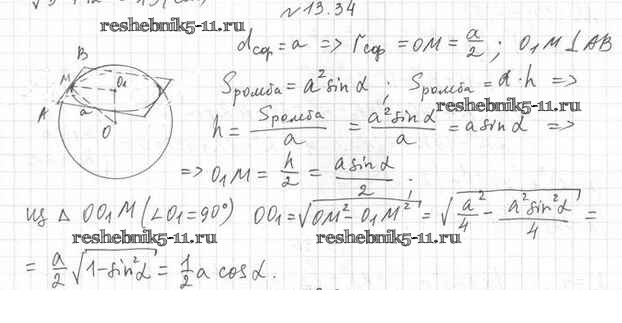 √13.34
reshebnik5-11.ru
d сф = a => r сф = OM = a/2 ; O₁M ⊥ AB
B
M
O₁
A
a
O
Sромба = a² sin α ; Sромба = a · h =>
reshebnik5-11.ru
h = Sромба/a = a² sin α/a = a sin α =>
=> O₁M = h/2 = a sin α/2 ;
из Δ OO₁M (∠O₁=90°) OO₁ = √(OM² - O₁M²) = √(a²/4 - a² sin² α/4) =
reshebnik5-11.ru reshebnik5-11.ru
= a/2 √(1-sin² α) = 1/2 a cos α.